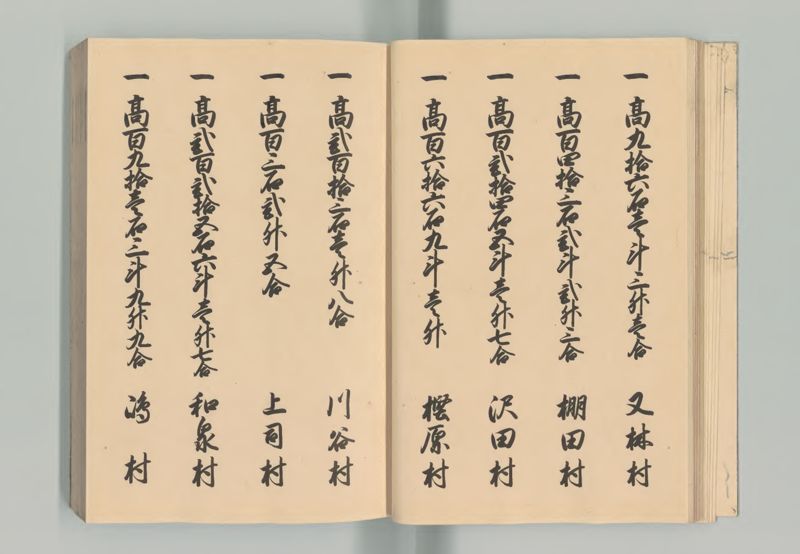 一 髙九拾六石壱斗三升壱合 又林村
一 髙百四拾三石弐斗弐升三合 棚田村
一 髙百弐拾四石五斗壱升七合 沢田村
一 髙百六拾六石九斗壱升 樫原村
一 髙弐百拾三石壱升八合 川谷村
一 髙百三石弐升五合 上司村
一 髙弐百弐拾五石六斗壱升七合 和泉村
一 髙百九拾壱石三斗九升九合 嶋村